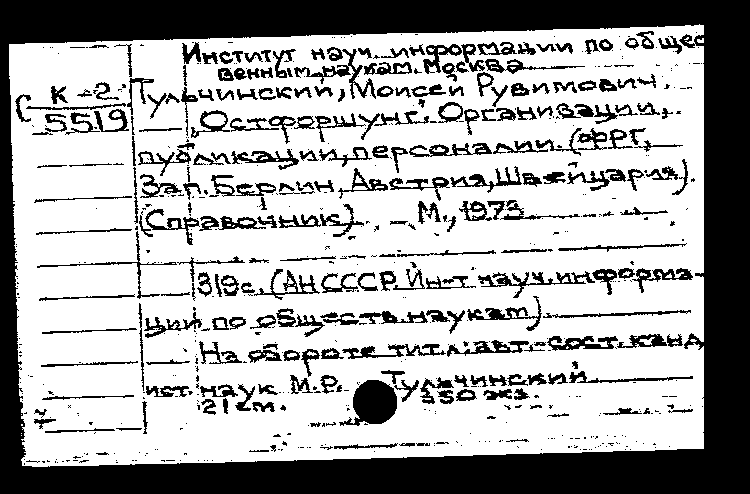 Институт науч. информации по общес
венным наукам. Москва
С К-2 Тульчинский, Моисей Рувимович.
5519 „Остфоршунг". Организации,
публикации, персоналии. (ФРГ,
Зап. Берлин, Австрия, Швейцария).
(Справочник). М., 1979
319с. (АН СССР. Ин-т науч. информа-
ции по обществ. наукам).
На обороте тит.л: авт.-сост. канд
ист. наук М.Р. Тульчинский
21 см. 350 экз.